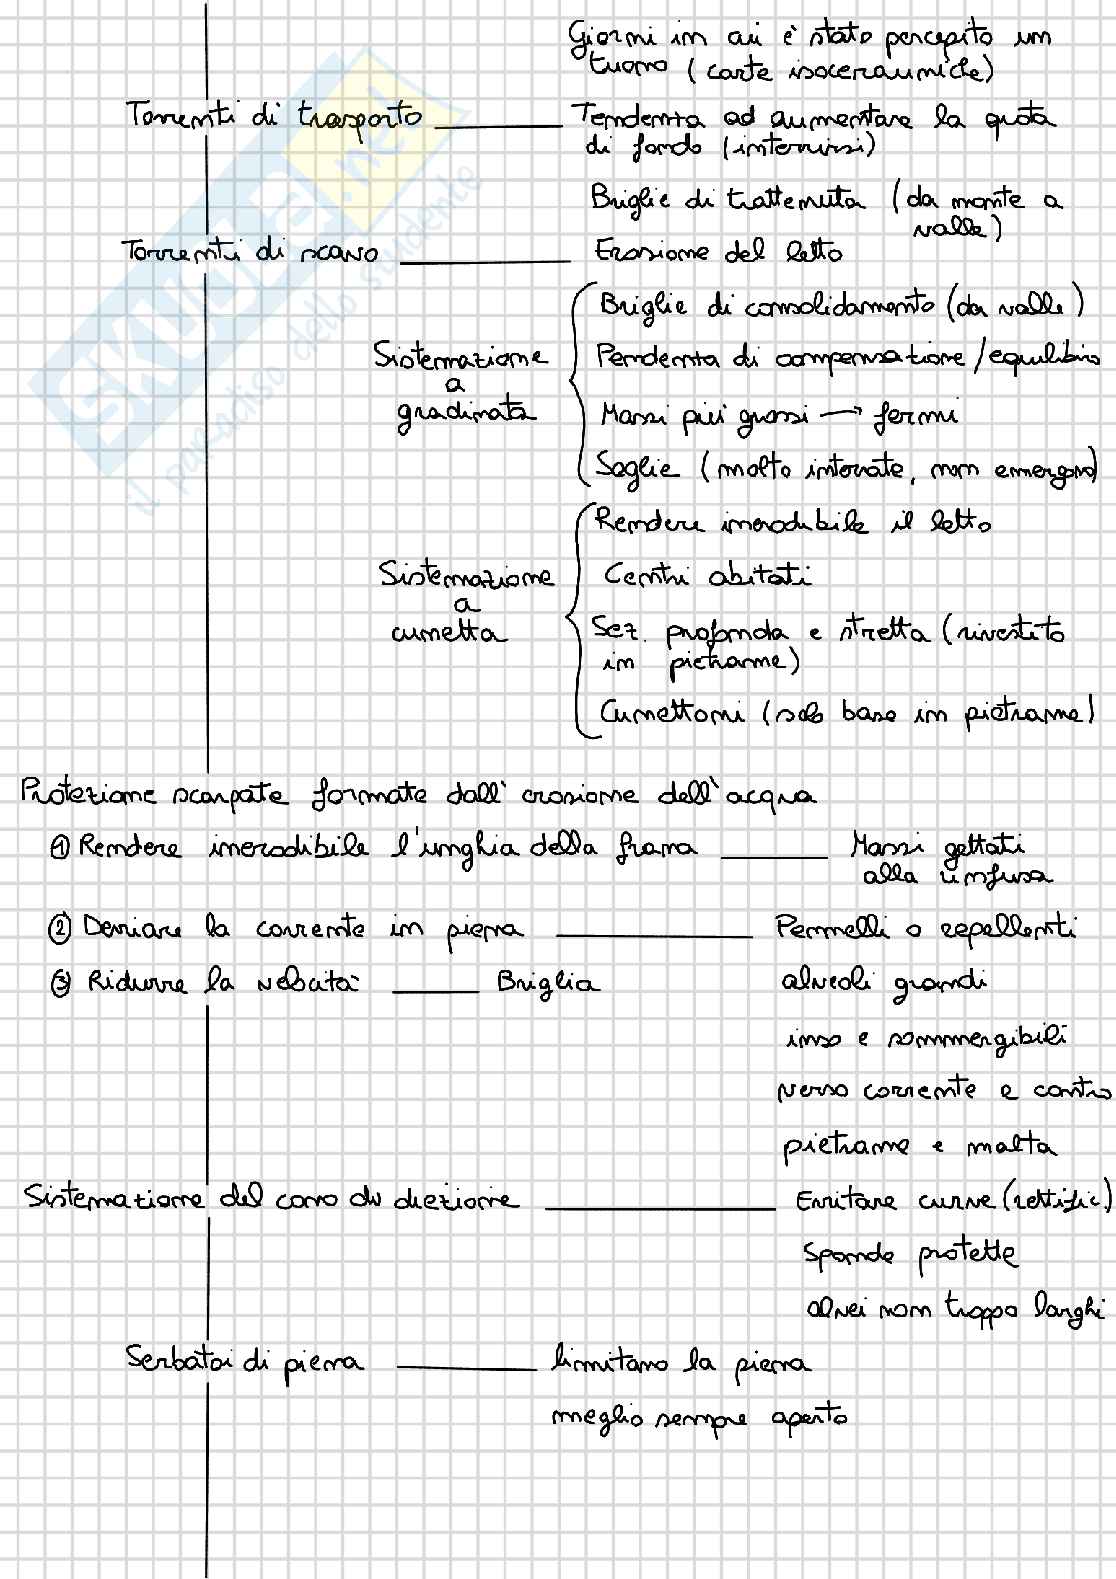 Giorni in cui è stato percepito un
tuono (carte isocerauniche)
Torrenti di trasporto Tendenza ad aumentare la quota
di fondo (interrirsi)
Briglie di trattenuta (da monte a
valle)
Torrenti di scavo Erosione del letto
Sistemazione
a
gradinata
Briglie di consolidamento (da valle)
Pendenza di compensazione/equilibrio
Massi più grossi → fermi
Soglie (molto interrate, non emergono)
Sistemazione
a
cunetta
Rendere inerodibile il letto
Centri abitati
Sez. profonda e stretta (rivestito
in pietrame)
Cunettoni (solo base in pietrame)
Protezione scarpate formate dall'erosione dell'acqua
① Rendere inerodibile l'unghia della frana Massi gettati
alla rinfusa
② Deviare la corrente in piena Pennelli o repellenti
③ Ridurre la velocità Briglia alveoli grandi
inso e sommergibili
verso corrente e contro
pietrame e malta
Sistemazione del corso di deiezione Evitare curve (rettific)
Sponde protette
alvei non troppo larghi
Serbatoi di piena limitano la piena
meglio sempre aperto
SKUOLA.net
il paradiso dello studente